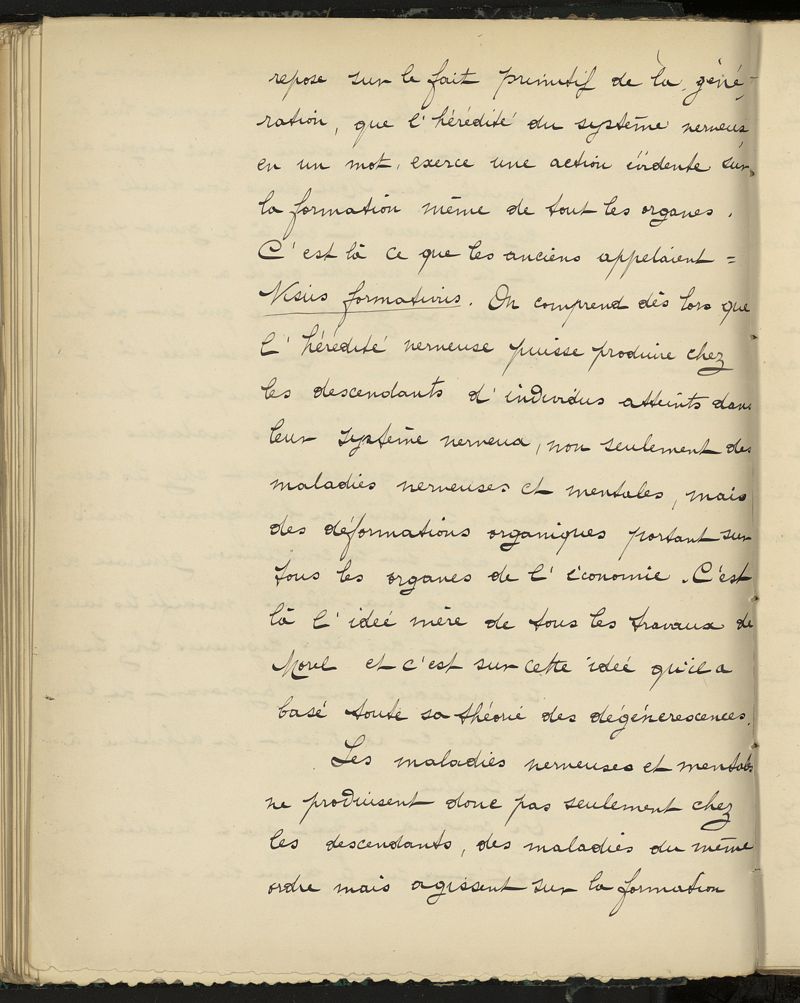 repose sur le fait primitif de la géné-
ration, que l'hérédité du système nerveux
en un mot, exerce une action évidente sur
la formation même de tout les organes.
C'est là ce que les anciens appelaient =
Nisus formativus. On comprend dès lors que
l'hérédité nerveuse puisse produire chez
les descendants d'individus atteints dans
leur système nerveux, non seulement des
maladies nerveuses et mentales, mais
des déformations organiques portant sur
tous les organes de l'économie. C'est
là l'idée mère de tous les travaux de
Morel et c'est sur cette idée qu'il a
basé toute sa théorie des dégénerescences.
Les maladies nerveuses et mentales
ne produisent donc pas seulement chez
les descendants, des maladies du même
ordre mais agissent sur la formation